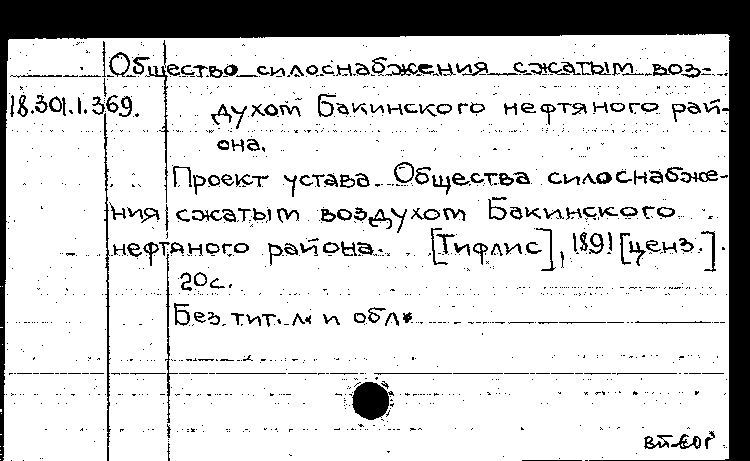 Общество силоснабжения сжатым воз-
18.301.1.369.
духом Бакинского нефтяного рай-
она.
Проект устава Общества силоснабже-
ния сжатым воздухом Бакинского
нефтяного района. [Тифлис], 1891 [ценз.].
20с.
Без тит. л. и обл.